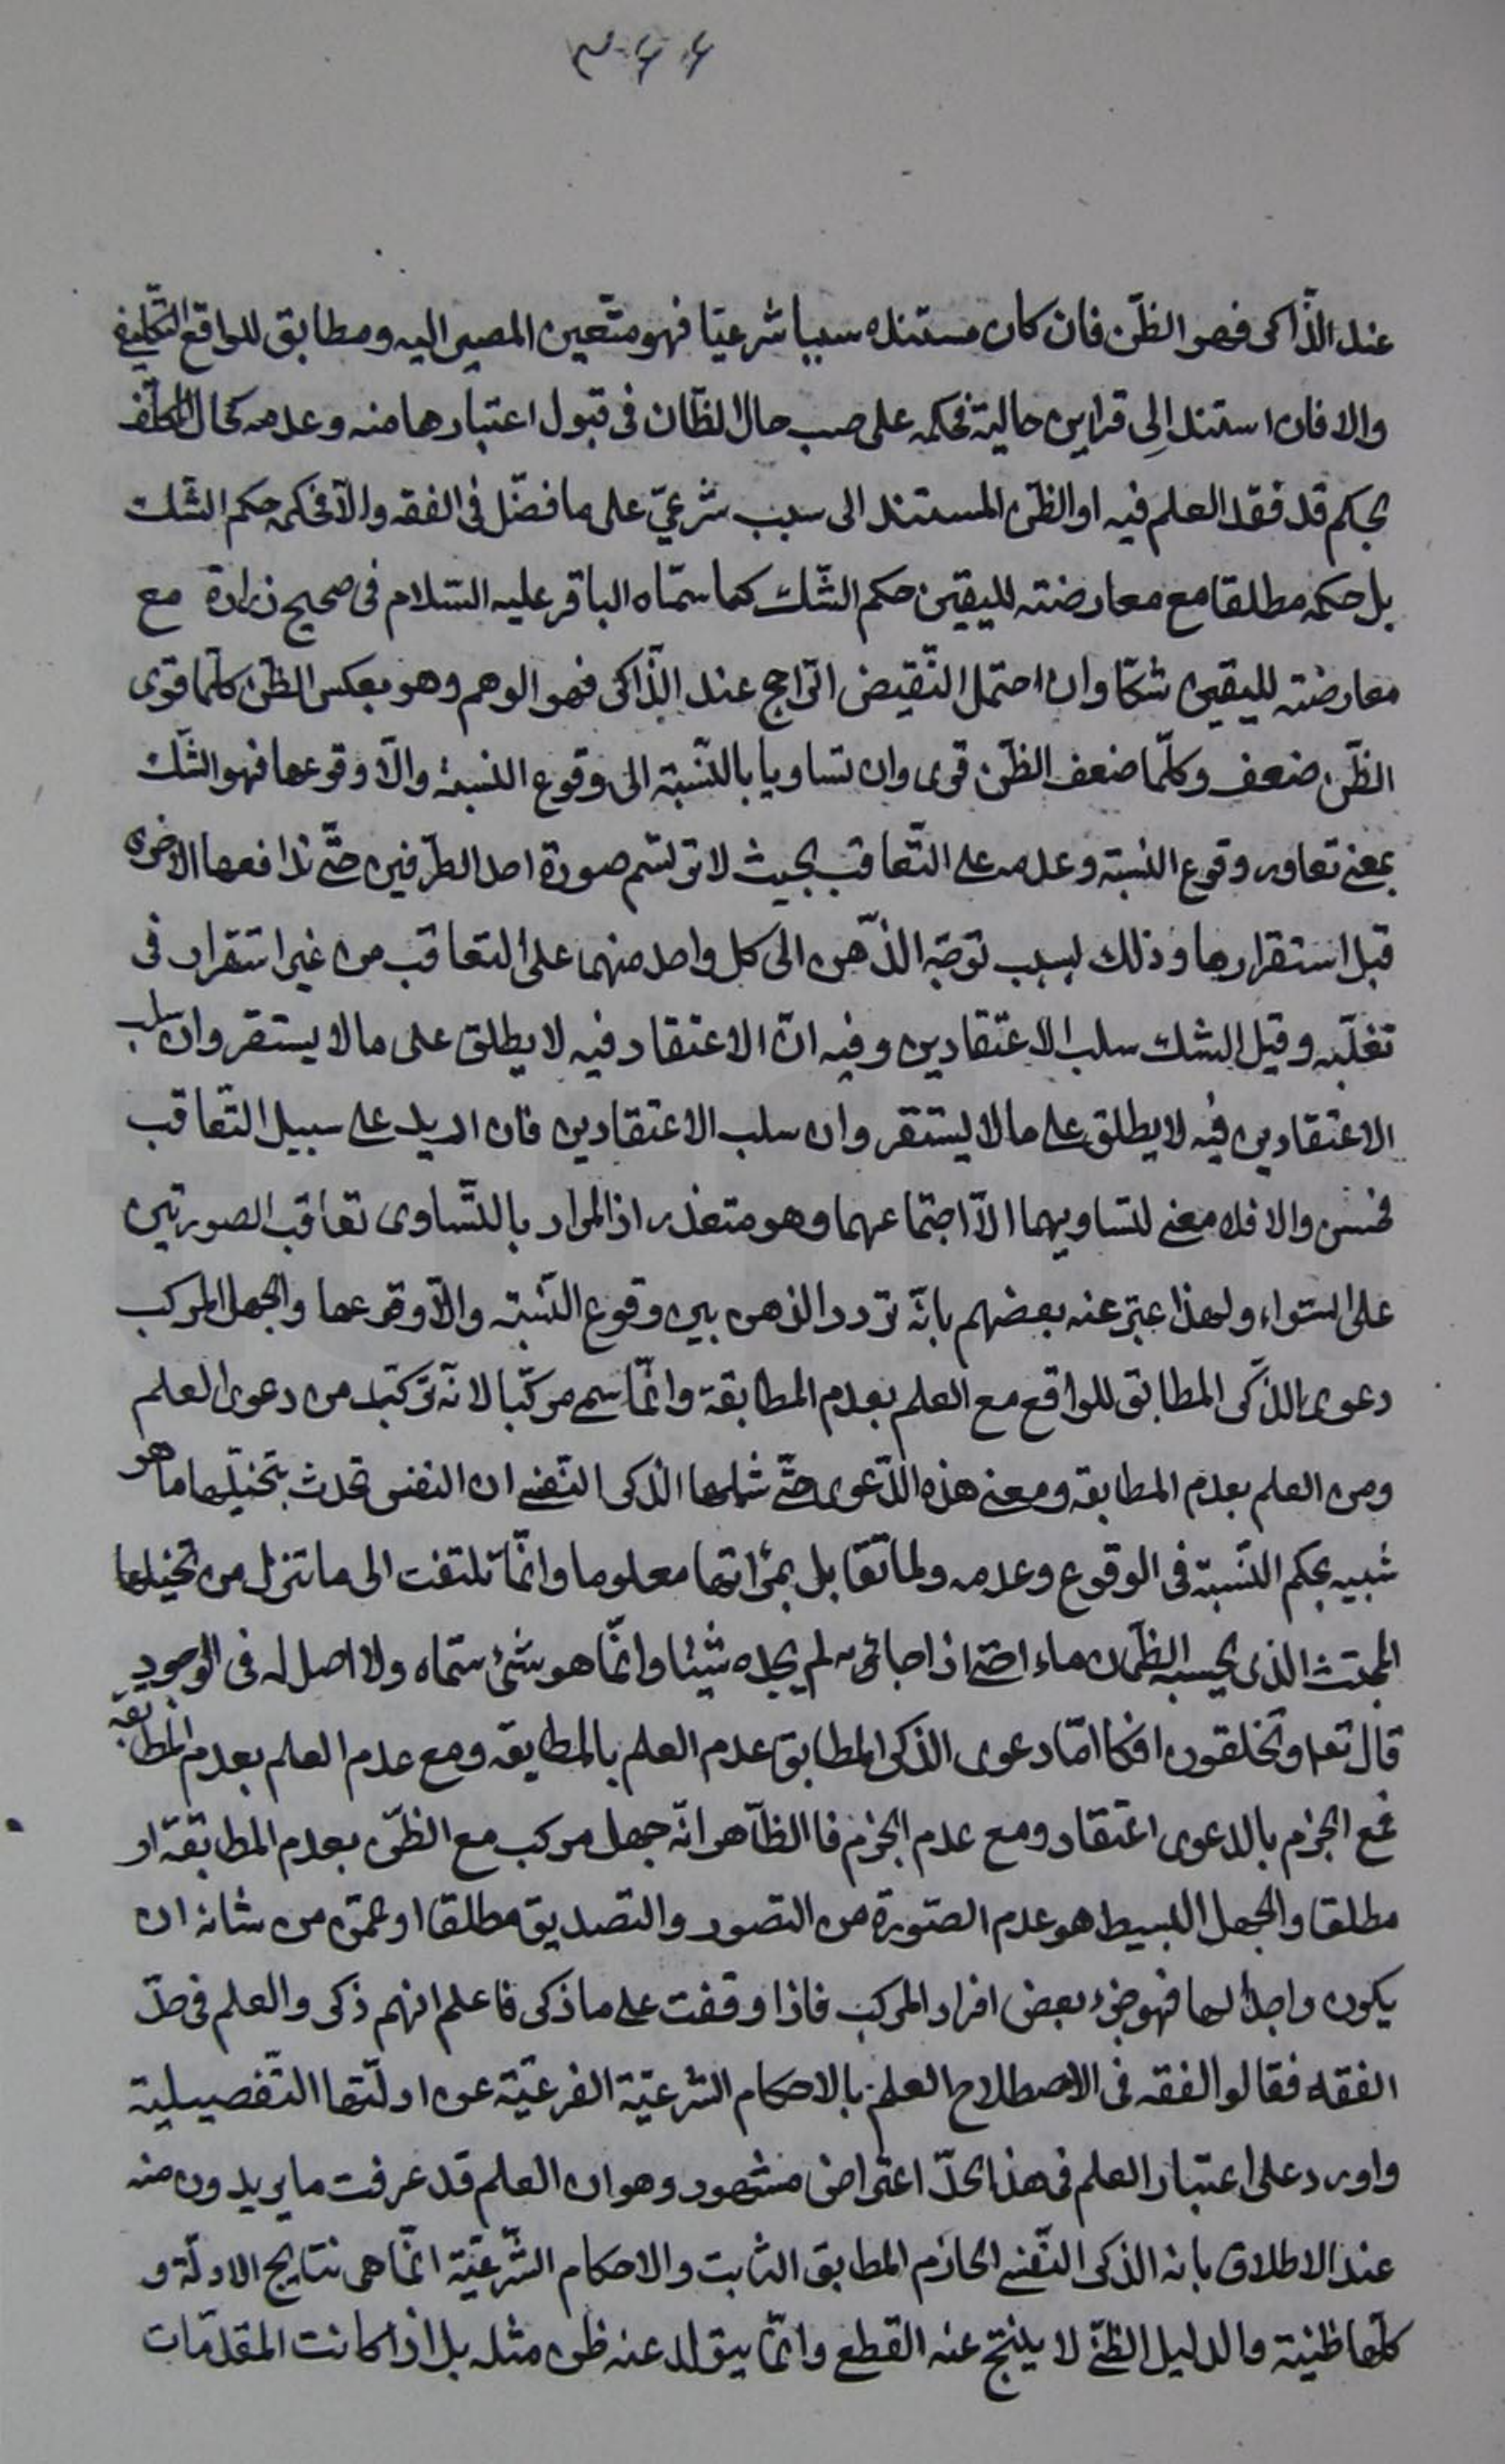 ٣٠٦٦
عند الذاكر فهو الظنّ فان كان مستنده سببا شرعيّا فهو متعين المصير اليه ومطابق للواقع التكليفي
والا فان استند الى قراين حالية فحكمه على حسب حال الظان فى قبول اعتبارها منه وعدمه كحال المكلف
بحكم قد فقد العلم فيه او الظن المستند الى سبب شرعيّ على ما فصّل فى الفقه والّا فحكمه حكم الشك
بل حكمه مطلقا مع معارضته لليقين حكم الشّك كما سمّاه الباقر عليه السّلام فى صحيح زرارة مع
معارضته لليقين شكّا وان احتمل النّقيض الرّاجح عند الذّاكر فهو الوهم وهو بعكس الظنّ كلّما قوى
الظّن ضعف وكلّما ضعف الظّن قوى وان تساويا بالنّسبة الى وقوع النسبة والّا وقوعها فهو الشّك
بمعنى تعاور وقوع النسبة وعدمه على التّعاقب بحيث لا ترتسم صورة احد الطرفين حتّى تدافعها الاخرى
قبل استقرارها وذلك بسبب توجّه الذّهن الى كل واحد منهما على التعاقب من غير استقرار فى
تغلّبه وقيل الشك سلب الاعتقادين وفيه انّ الاعتقاد فيه لا يطلق على ما لا يستقر وان سلب
الاعتقادين فيه لا يطلق على ما لا يستقر وان سلب الاعتقادين فان اريد على سبيل التّعاقب
فحسن والا فلا معنى لتساويهما الّا اجتماعهما وهو متعذر اذ المراد بالتّساوى تعاقب الصورتين
على السّواء ولهذا عبّر عنه بعضهم بانّه تردد الذهن بين وقوع النّسبة والّا وقوعها والجهل المركب
دعوى الذّكر المطابق للواقع مع العلم بعدم المطابقة وانّما سمى مركّبا لانّه تركّب من دعوى العلم
ومن العلم بعدم المطابقة ومعنى هذه الدّعوى حتّى شملها الذكر النّفسى ان النفس تحدث بتخيّلها ما هو
شبيه بحكم النّسبة فى الوقوع وعدمه ولما تقابل بمرآتها معلوما وانّما تلتفت الى ما تنزل من تخيلها
المجتث الذى يحسبه الظمآن ماء حتى اذا جاءه لم يجده شيئا وانّما هو شئ سمّاه ولا اصل له فى الوجود
قال تعا وتخلقون افكا امّا دعوى الذكر المطابق عدم العلم بالمطابقة ومع عدم العلم بعدم المطابقة
فمع الجزم بالدعوى اعتقاد ومع عدم الجزم فالظّاهر انّه جهل مركب مع الظنّ بعدم المطابقة او
مطلقا والجهل البسيط هو عدم الصّورة من التصور والتصديق مطلقا او عمّن من شانه ان
يكون واجدا لها فهو جزء بعض افراد المركب فاذا وقفت على ما ذكر فاعلم انهم ذكر والعلم فى حدّ
الفقه فقالوا الفقه فى الاصطلاح العلم بالاحكام الشّرعيّة الفرعيّة عن ادلّتها التّفصيلية
واورد على اعتبار العلم فى هذا الحدّ اعتراض مشهور وهو ان العلم قد عرفت ما يريدون منه
عند الاطلاق بانه الذكر النّفسى الجازم المطابق الثابت والاحكام الشّرعيّة انّما هى نتايج الادلّة و
كلّها ظنية والدليل الظنّى لا ينتج عنه القطع وانّما يتولد عنه ظن مثله بل اذا كانت المقدّمات